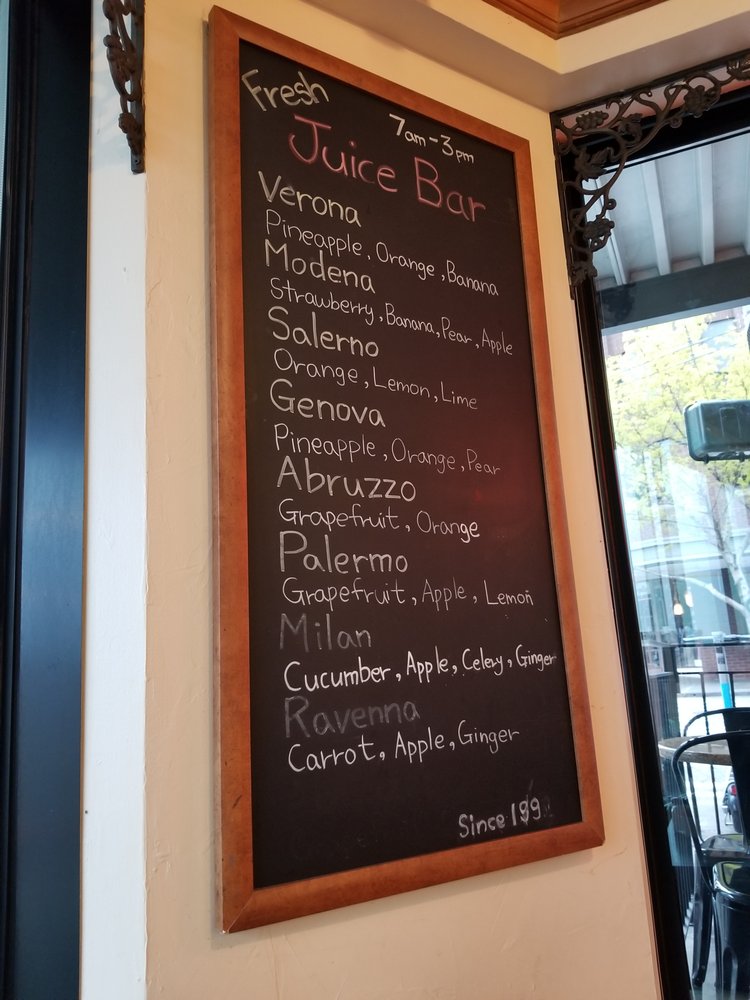 Fresh
7am-3pm
Juice Bar
Verona
Pineapple, Orange, Banana
Modena
Strawberry, Banana, Pear, Apple
Salerno
Orange, Lemon, Lime
Genova
Pineapple, Orange, Pear
Abruzzo
Grapefruit, Orange
Palermo
Grapefruit, Apple, Lemon
Milan
Cucumber, Apple, Celery, Ginger
Ravenna
Carrot, Apple, Ginger
Since